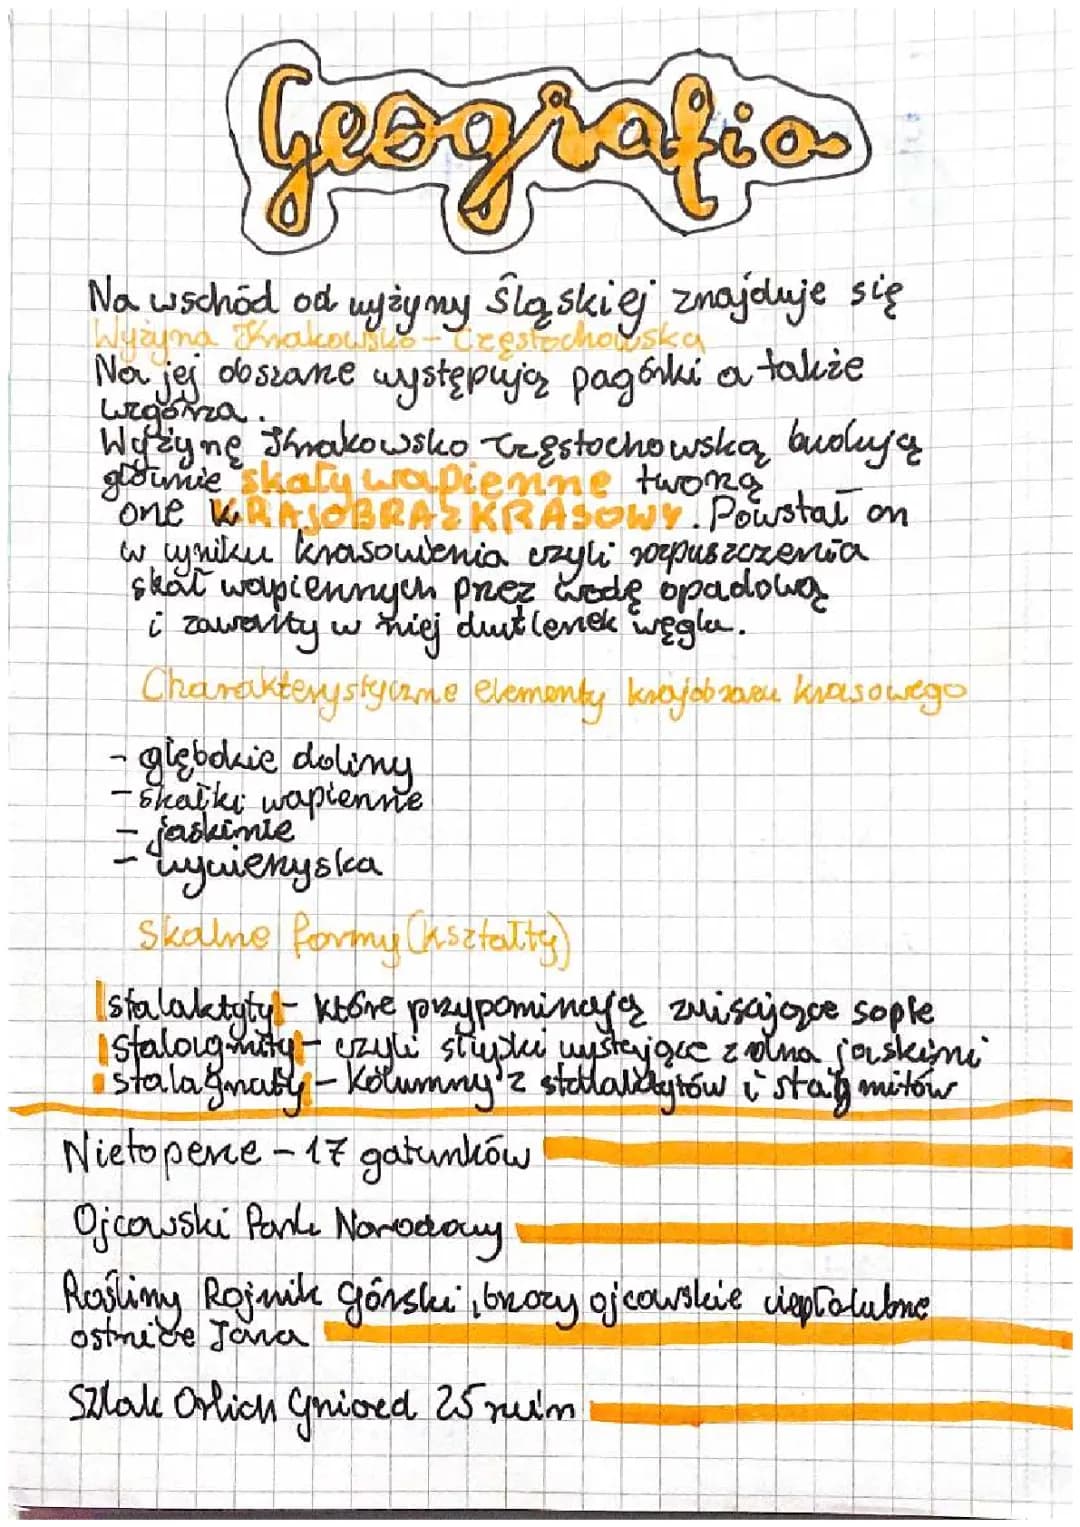 Geografia
Na wschód od wyżyny Śląskiej znajduje się
Wyżyna Krakowsko - Częstochowska
Na jej obszarze występują pagórki a także
wzgórza.
Wyżynę Krakowsko Częstochowską budują
głównie skały wapienne tworzą
one KRAJOBRAZ KRASOWY. Powstał on
w wyniku krasowienia czyli rozpuszczenia
skał wapiennych przez wodę opadową
i zawarty w niej dwutlenek węgla.
Charakterystyczne elementy krajobrazu krasowego
- głębokie doliny
- skałki wapienne
- jaskinie
- wywierzyska
Skalne formy (kształty)
stalaktyty - które przypominają zwisające sople
stalagmity - czyli słupki wystające z dna jaskini
stalagnaty - kolumny z stalaktytów i stagmitów
Nietoperze - 17 gatunków
Ojcowski Park Narodowy
Rośliny Rojnik Górski, brzozy ojcowskie ciepłolubne
ostnice Jana
Szlak Orlich Gniazd 25 ruin